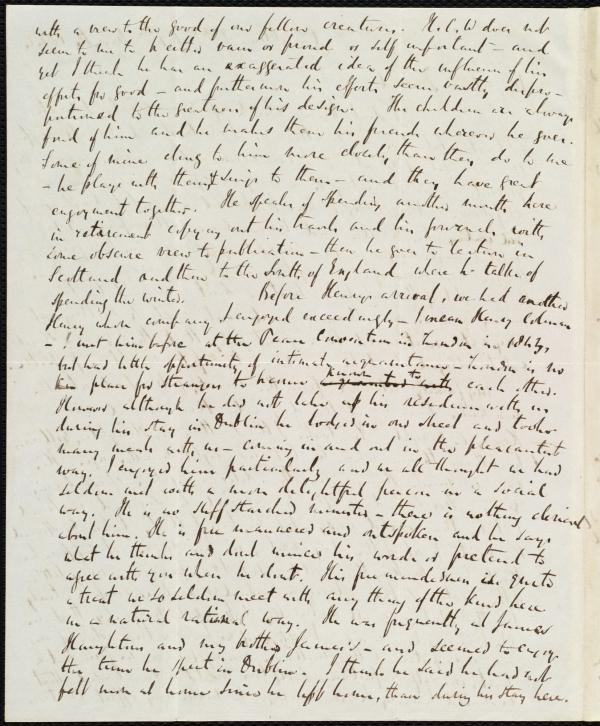 with a view to the good of our fellow creatures. H. C. W does not
seem to me to be either vain or proud or self important - and
yet I think he has an exaggerated idea of the influence of his
efforts for good - and furthermore his efforts seem vastly dispro-
portioned to the greatness of his designs. The children are always
fond of him and he makes them his friends wherever he goes.
Some of mine cling to him more closely than they do to me
- he plays with them & sings to them - and they have great
enjoyment together. He speaks of spending another month here
in retirement copying out his travels and his journals with
some obscure view to publication - then he goes to lecture in
Scotland and then to the South of England where he talks of
spending the winter. Before Henry's arrival, we had another
Henry whose company I enjoyed exceedingly - I mean Henry Colman
- I met him before at the Peace Convention in London in 1843,
but had little opportunity of intimate acquaintance - London is no
place for strangers to become known to each other.
However although he did not take up his residence with us
during his stay in Dublin he lodged in our street and took
many meals with us - coming in and out in the pleasantest
way. I enjoyed him particularly and we all thought we had
seldom met with a more delightful person in a social
way. He is no stiff starched minister - there is nothing clerical
about him. He is free mannered and outspoken and he says
what he thinks and don't mince his words or pretend to
agree with you when he don't. His free mindedness is quite
a treat we so seldom meet with any thing of the kind here
in a natural rational way. He was frequently at James
Haughton's and my brother James's - and seemed to enjoy
the time he spent in Dublin. I think he said he had not
felt more at home since he left home, than during his stay here.